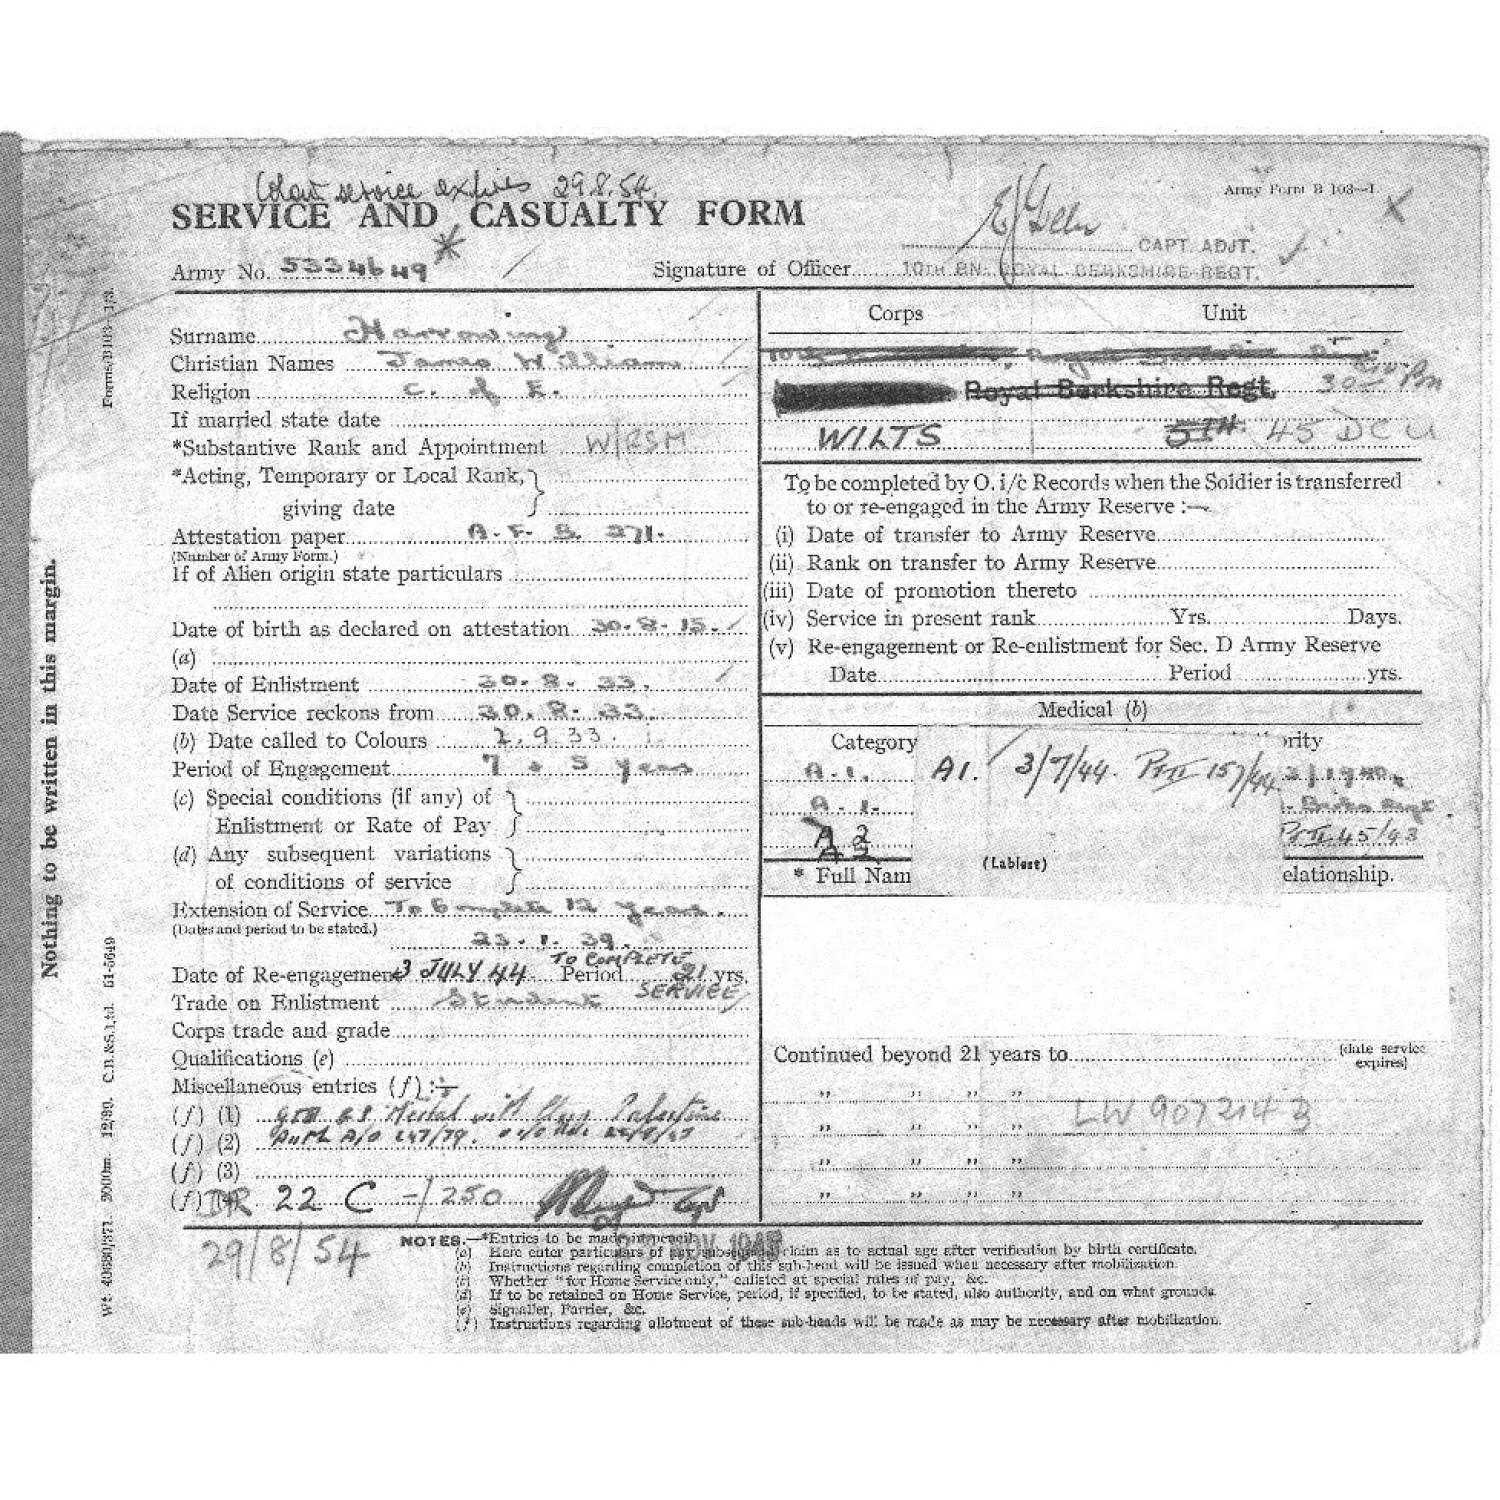 Colour service expires 29.8.54.
Army Form B 103—I
X
SERVICE AND CASUALTY FORM
CAPT. ADJT.
Army No. 5334649 *
Signature of Officer 10TH BN. ROYAL BERKSHIRE REGT.
Surname Harrowing
Christian Names James William
Religion C. of E.
If married state date
*Substantive Rank and Appointment W/RSM
*Acting, Temporary or Local Rank, giving date
Attestation paper A.F. B. 271.
(Number of Army Form.)
If of Alien origin state particulars
Date of birth as declared on attestation 30.8.15.
(a)
Date of Enlistment 30.8.33.
Date Service reckons from 30.8.33.
(b) Date called to Colours 2.9.33.
Period of Engagement 7 + 5 years
(c) Special conditions (if any) of
Enlistment or Rate of Pay
(d) Any subsequent variations
of conditions of service
Extension of Service To Complete 12 years.
(Dates and period to be stated.)
23.1.39.
Date of Re-engagement 3 JULY 44 Period TO COMPLETE 21 yrs.
SERVICE
Trade on Enlistment Student
Corps trade and grade
Qualifications (e)
Miscellaneous entries (f) :—
(f) (1) Medal with Clasp Palestine
(f) (2) Auth A/O 147/39.
(f) (3)
(f) 22 C -/250
29/8/54
Corps Unit
Royal Berkshire Regt. 30
WILTS 5TH 45 DCU
To be completed by O. i/c Records when the Soldier is transferred
to or re-engaged in the Army Reserve :—
(i) Date of transfer to Army Reserve
(ii) Rank on transfer to Army Reserve
(iii) Date of promotion thereto
(iv) Service in present rank Yrs. Days.
(v) Re-engagement or Re-enlistment for Sec. D Army Reserve
Date Period yrs.
Medical (b)
Category ority
A.1. A1. 3/7/44. Pt II 157/44
A.1.
A 2 Pt II 45/43
A 2
* Full Nam elationship.
Continued beyond 21 years to (date service expires)
" " " "
LW 907214 3
" " " "
" " " "
" " " "
NOTES.—*Entries to be made in pencil.
NOV
(a) Here enter particulars of any subsequent claim as to actual age after verification by birth certificate.
(b) Instructions regarding completion of this sub-head will be issued when necessary after mobilization.
(c) Whether "for Home Service only," enlisted at special rates of pay, &c.
(d) If to be retained on Home Service, period, if specified, to be stated, also authority, and on what grounds.
(e) Signaller, Farrier, &c.
(f) Instructions regarding allotment of these sub-heads will be made as may be necessary after mobilization.
Nothing to be written in this margin.
Forms/B103—1/3.
Wt. 40680/371. 2000m. 12/39. C.N.&S.Ltd. 51-5649